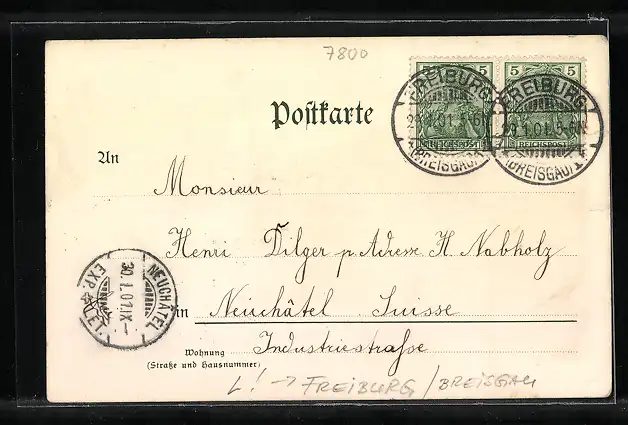 7800
5 5 5 5
FREIBURG FREIBURG
29.1.01.5-6N 29.1.01.5-6N
REICHSPOST REICHSPOST
(BREISGAU) (BREISGAU)
Postkarte
An
Monsieur
Henri Dilger p. Adresse H. Nabholz
in Neuchâtel Suisse
Industriestrasse
Wohnung
(Straße und Hausnummer)
NEUCHÂTEL
30.I.01.IX-
EXP. LET.
L! → FREIBURG / BREISGAU